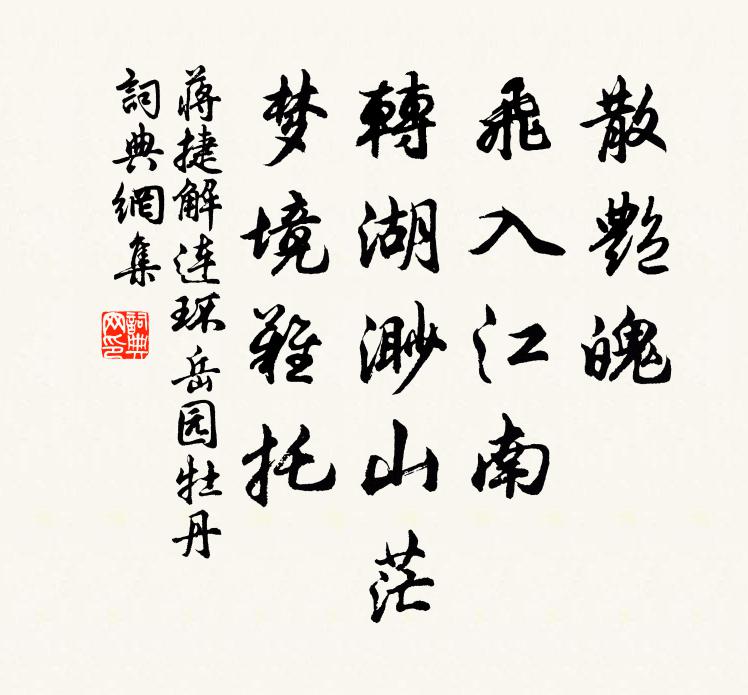 散艷魄
飛入江南
轉湖渺山茫
梦境難托
蔣捷解連环岳园牡丹
詞典網集
詞典
网印